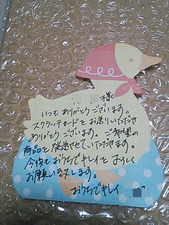 様
いつもありがとうございます。
スクラッチカードをお送りいただき
ありがとうございます。ご希望の
商品を放送させていただきます。
今後もおうちでキレイをよろしく
お願い致します。
おうちでキレイ